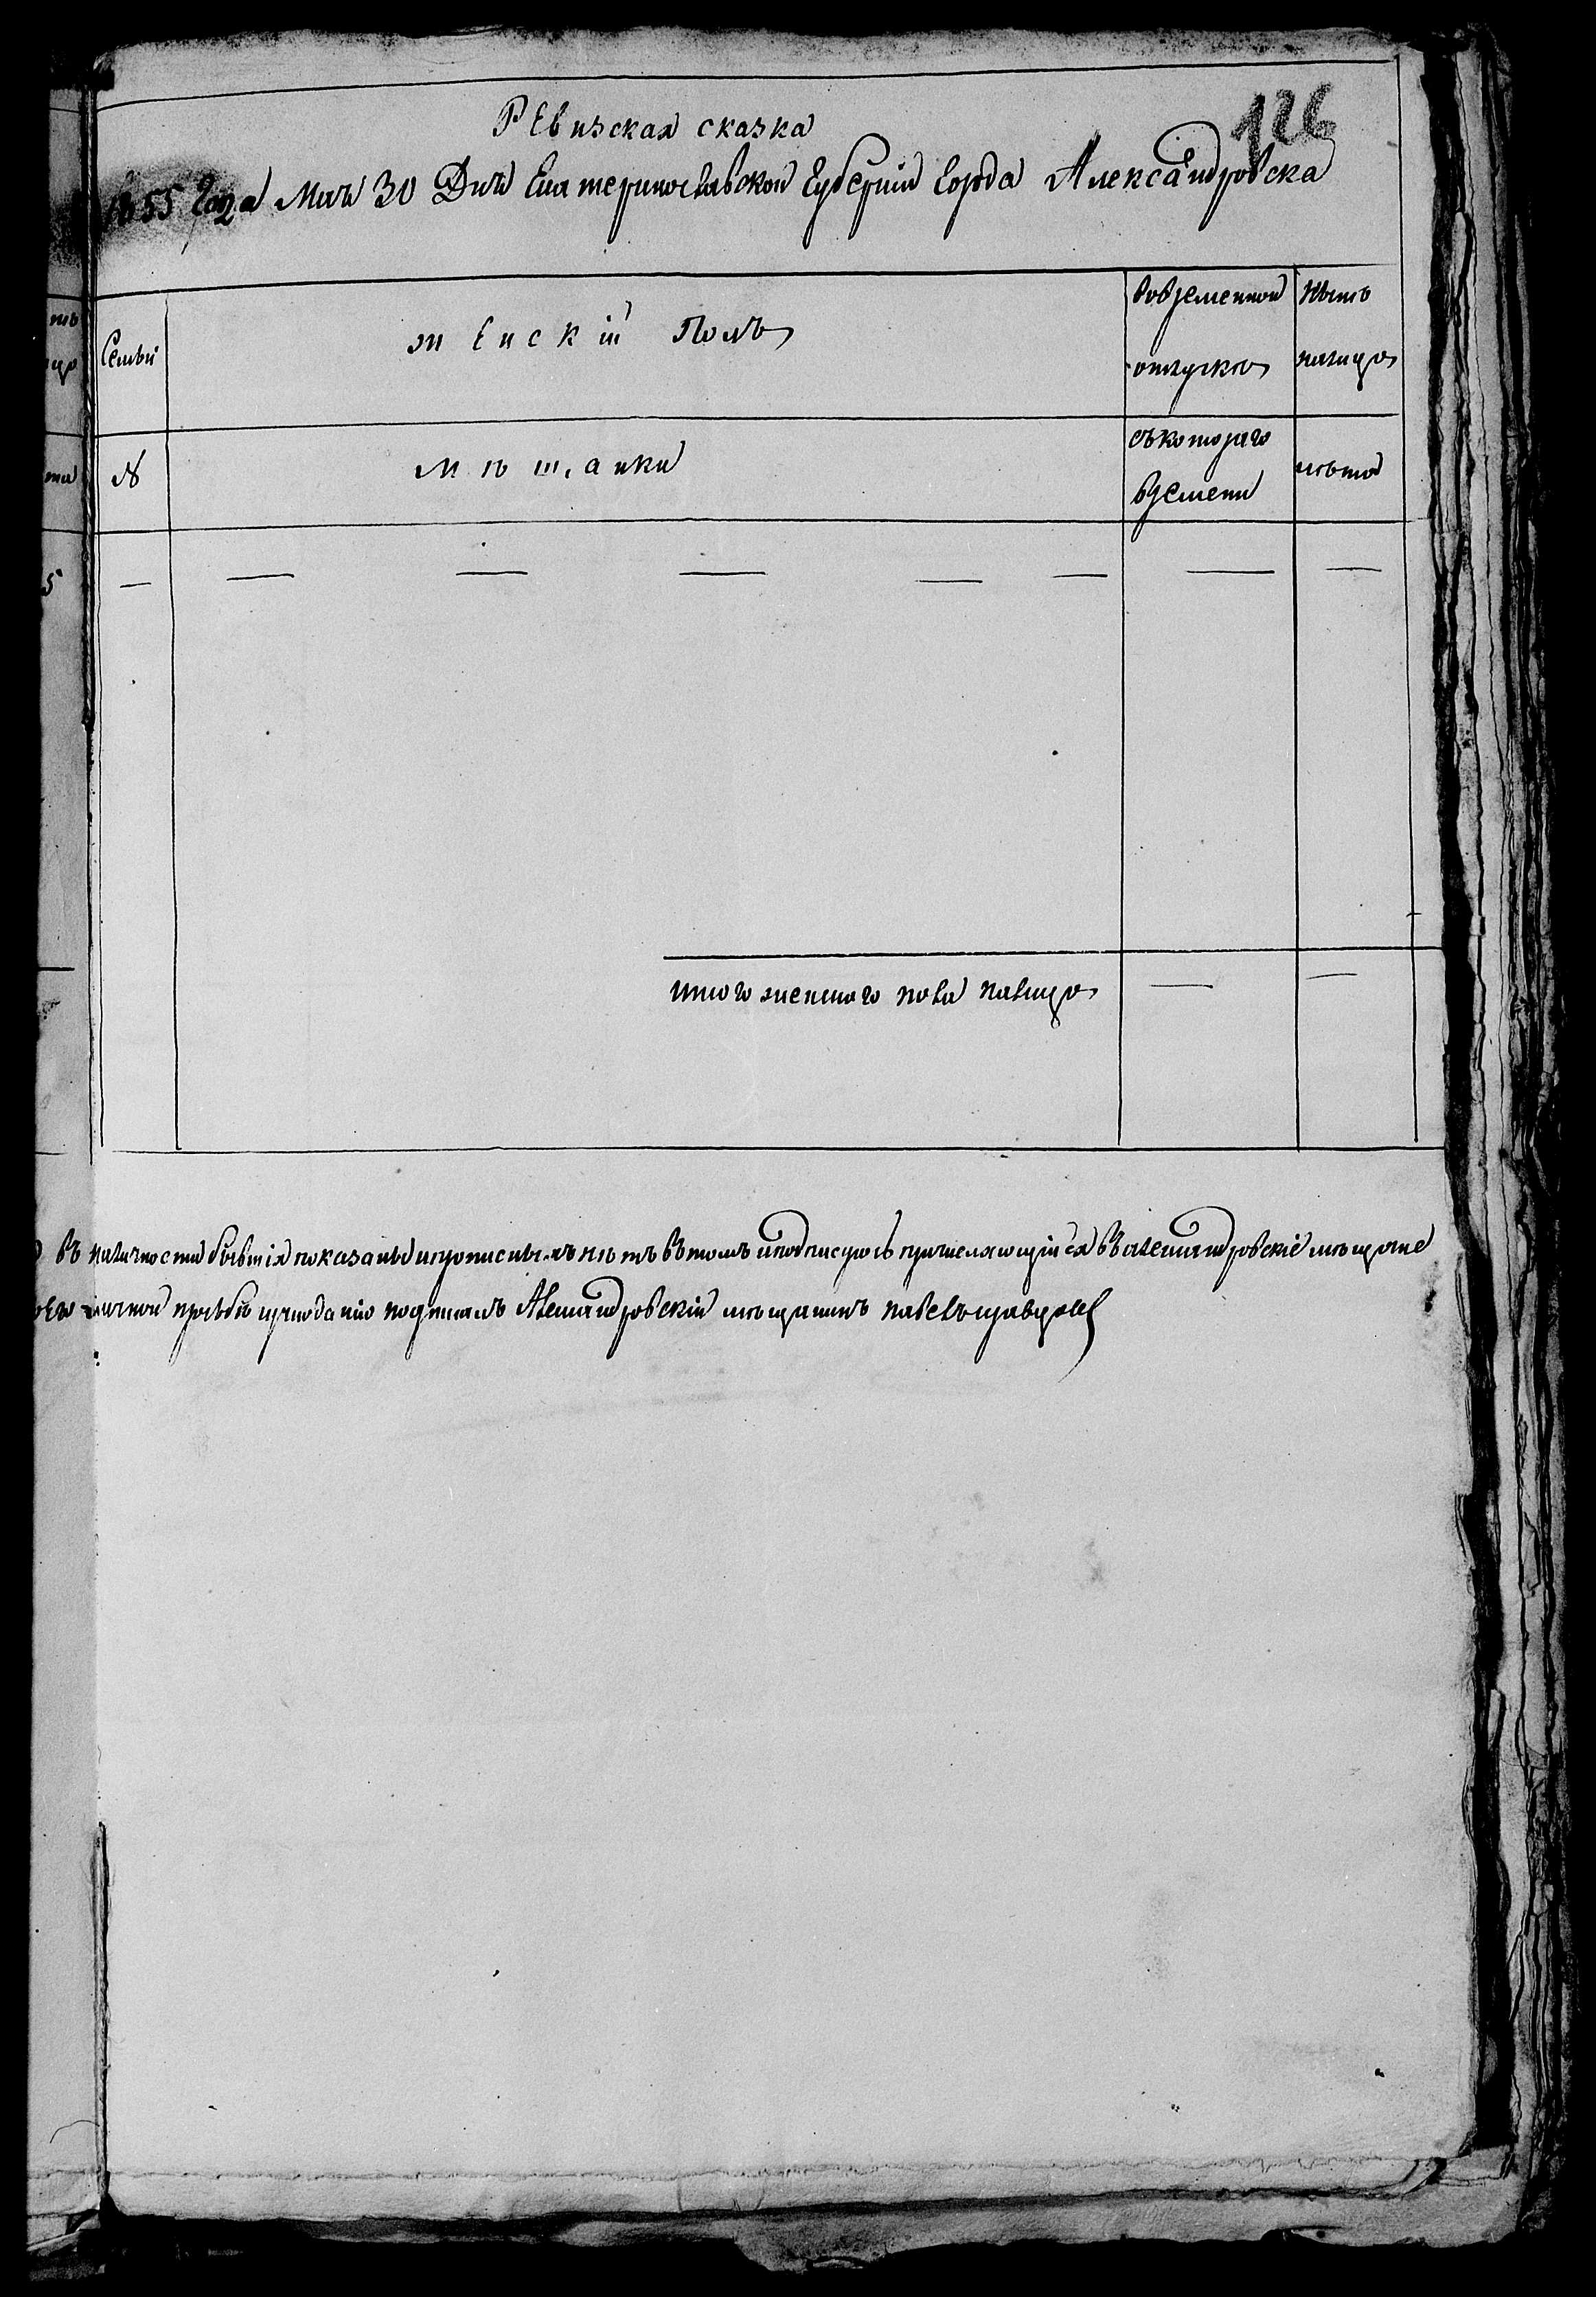 126
РЕвизская сказка
1855 Года Маія 30 Дня Екатеринославской Губерніи Города Александровска
Семьи
женскій Полъ
вовременной
отлучкѣ
Нынѣ
налицо
№
Мѣщанки
съкотораго
времени
лѣта
— — — — — — — —
итого женскаго пола налицо — —
въ наличности бывшія показаны ипрописныхъ нѣтъ вътомъ иподписуюсь причисляющійся въалександровскіе мѣщане
его личной прозьбѣ подписалъ Александровскій мѣщанинъ павелъ